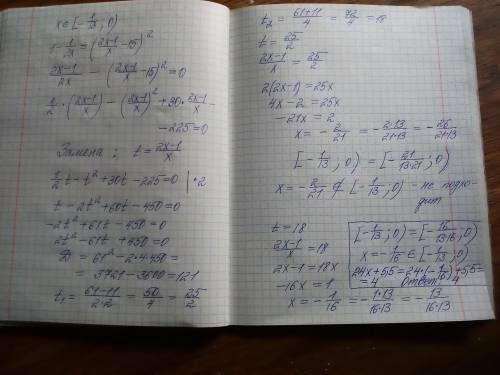 x∈[-1/13; 0)
1 - 1/2x = (2x-1/x - 15)²
2x-1/2x - (2x-1/x - 15)² = 0
1/2 · (2x-1/x) - (2x-1/x)² + 30 · 2x-1/x -
- 225 = 0
Замена: t = 2x-1/x
1/2 t - t² + 30t - 225 = 0 | · 2
t - 2t² + 60t - 450 = 0
-2t² + 61t - 450 = 0
2t² - 61t + 450 = 0
D = 61² - 2·4·450 =
= 3721 - 3600 = 121
t₁ = 61-11/2·2 = 50/4 = 25/2
t₂ = 61+11/4 = 72/4 = 18
t = 25/2
2x-1/x = 25/2
2(2x-1) = 25x
4x - 2 = 25x
-21x = 2
x = -2/21 = -2·13/21·13 = -26/21·13
[-1/13; 0) = [-21/13·21; 0)
x = -2/21 ∉ [-1/13; 0) - не подхо-
дит
t = 18
2x-1/x = 18
2x-1 = 18x
-16x = 1
x = -1/16 = -1·13/16·13 = -13/16·13
[-1/13; 0) = [-16/13·16; 0)
x = -1/16 ∈ [-1/13; 0)
24x + 5,5 = 24·(-1/16) + 5,5 =
= 4 Ответ: 4